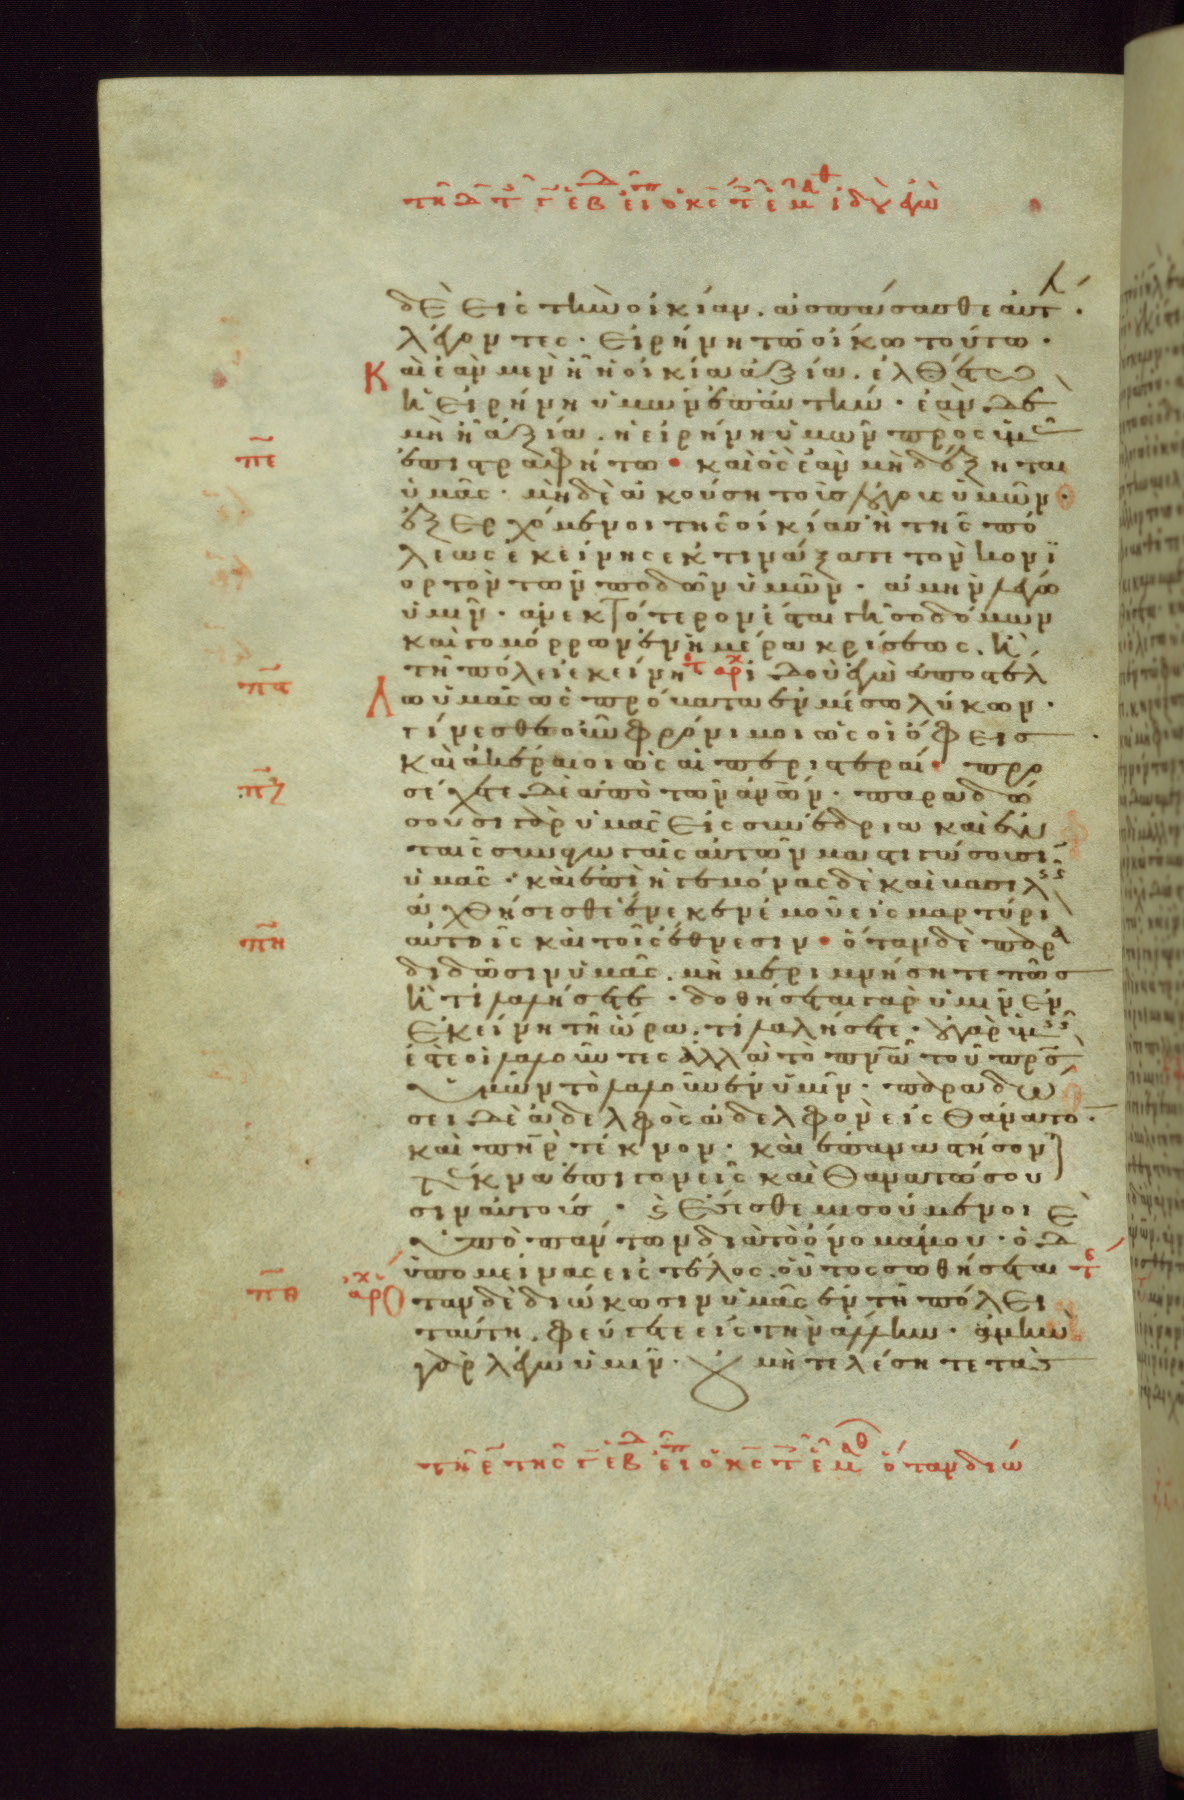 δὲ εἰς τὴν οἰκίαν. ἀσπάσασθε αὐτ
λέγοντες· εἰρήνη τῶ οἴκω τούτω·
Καὶ ἐὰν μὲν ῆ ἡ οἰκία ἀξία. ἐλθέτω
ἡ εἰρήνη ὑμῶν ἐπ αὐτήν· ἐὰν δὲ
μὴ ῆ ἀξία. ἡ εἰρήνη ὑμῶν πρὸς ὑμᾶς
πε ἐπιστραφήτω· καὶ ὃς ἐὰν μὴ δέξηται
ὑμᾶς· μηδὲ ἀκούση τοῖς λόγοις ὑμῶν·
ἐξερχόμενοι τῆς οἰκίας ἢ τῆς πό
λεως ἐκείνης ἐκτινάξατε τὸν κονι
ορτὸν τῶν ποδῶν ὑμῶν· ἀμὴν λέγω
ὑμῖν· ἀνεκτότερον ἔσται γῆ σοδόμων
καὶ γομόρρων ἐν ἡμέρα κρίσεως. ἢ
πς τῆ πόλει ἐκείνη ἰδοὺ ἐγὼ ἀποστέλ
λω ὑμᾶς ὡς πρόβατα ἐν μέσω λύκων·
γίνεσθε οὖν φρόνιμοι ὡς οἱ ὄφεις
καὶ ἀκέραιοι ὡς αἱ περιστεραί· προ
πζ σέχετε δὲ ἀπὸ τῶν ἀνῶν· παραδώ
σουσι γὰρ ὑμᾶς εἰς συνέδρια καὶ ἐν
ταῖς συναγωγαῖς αὐτῶν μαστιγώσουσι
ὑμᾶς· καὶ ἐπὶ ἡγεμόνας δὲ καὶ βασιλ
ἀχθήσεσθε ἕνεκεν ἐμοῦ εἰς μαρτύρι
πη αὐτοῖς καὶ τοῖς ἔθνεσιν· ὅταν δὲ παρα
διδῶσιν ὑμᾶς. μὴ μεριμνήσητε πῶς
ἢ τί λαλήσετε· δοθήσεται γὰρ ὑμῖν ἐν
ἐκείνη τῆ ὥρα. τί λαλήσετε· οὐ γὰρ ὑμεῖς
ἐστε οἱ λαλοῦντες ἀλλὰ τὸ πνα τοῦ πρς
ὑμῶν τὸ λαλοῦν ἐν ὑμῖν· παραδώ
σει δὲ ἀδελφὸς ἀδελφὸν εἰς θάνατο
καὶ πηρ τέκνον· καὶ ἐπαναστήσον
τέκνα ἐπὶ γονεῖς καὶ θανατώσου
σιν αὐτούς· καὶ ἔσεσθε μισούμενοι
ὑπὸ πάντων διὰ τὸ ὄνομά μου· ὁ δ
ὑπομείνας εἰς τέλος. οὗτος σωθήσεται
πθ Ὅταν δὲ διώκωσιν ὑμᾶς ἐν τῆ πόλει
ταύτη. φεύγετε εἰς τὴν ἄλλην· ἀμὴν
γὰρ λέγω ὑμῖν· οὐ μὴ τελέσητε τὰς